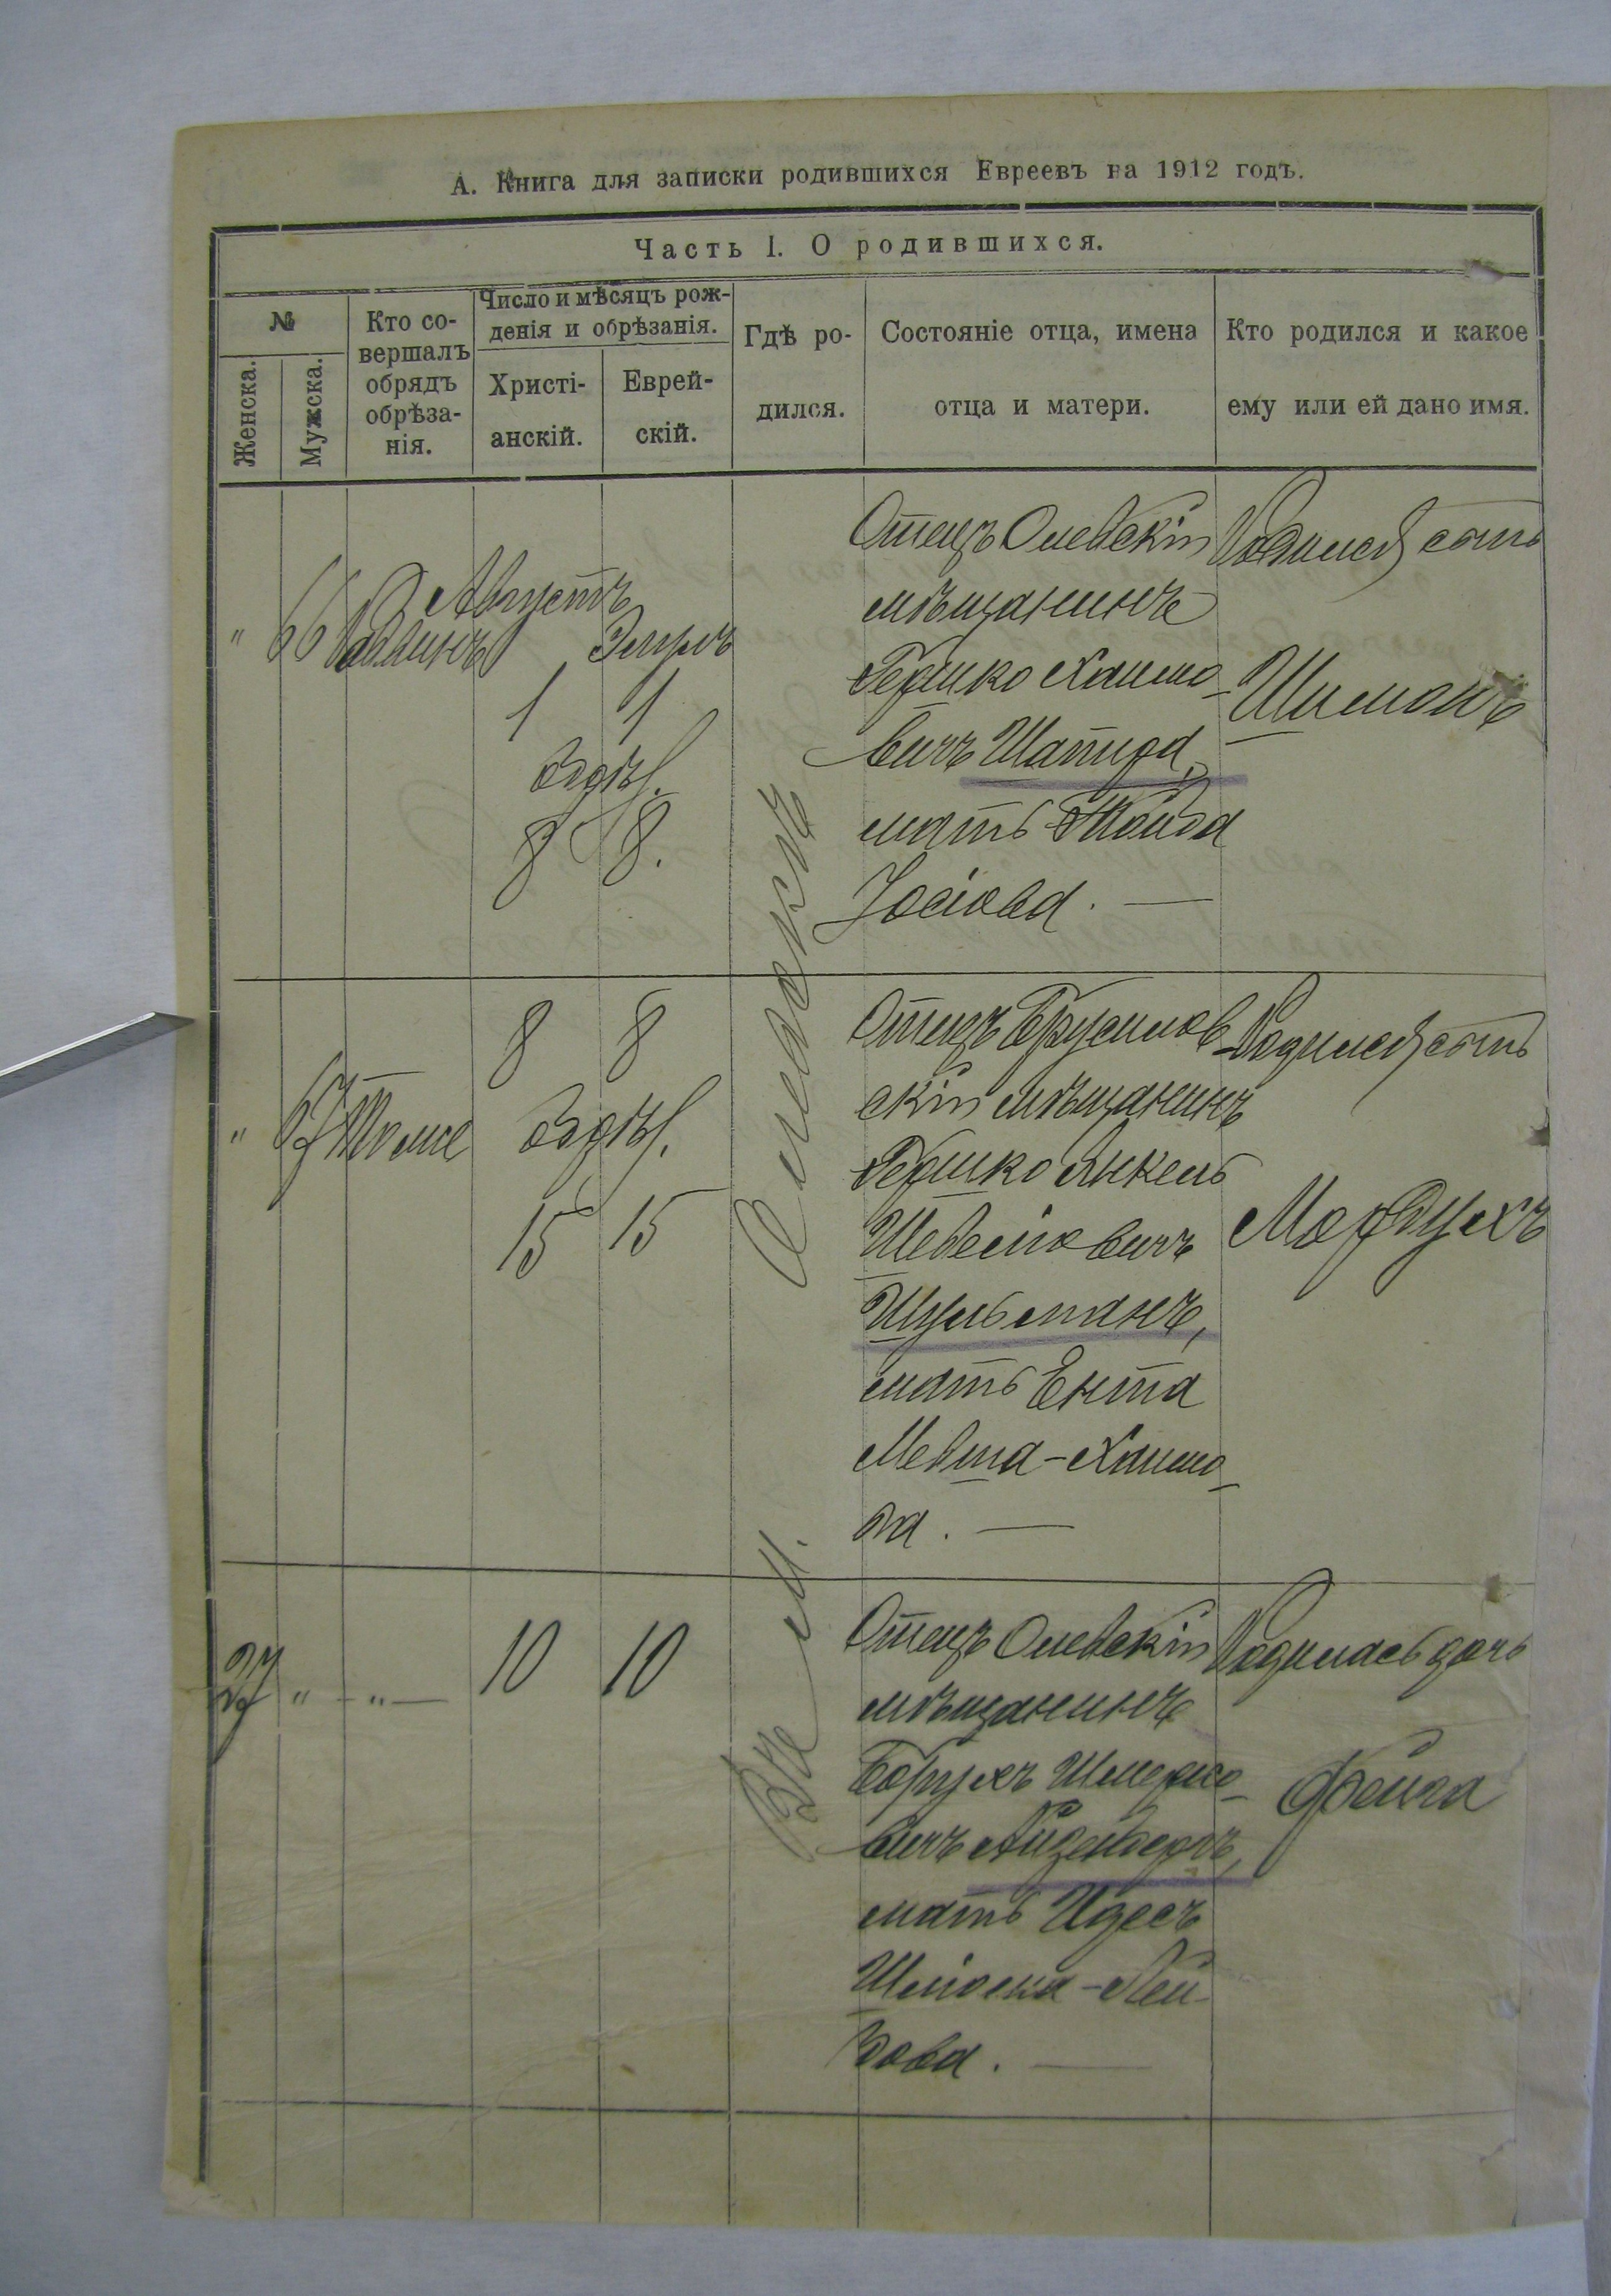 А. Книга для записки родившихся Евреевъ на 1912 годъ.
Часть I. О родившихся.
№
Женска.
Мужска.
Кто со-
вершалъ
обрядъ
обрѣза-
нія.
Число и мѣсяцъ рож-
денія и обрѣзанія.
Христі-
анскій.
Еврей-
скій.
Гдѣ ро-
дился.
Состояніе отца, имена
отца и матери.
Кто родился и какое
ему или ей дано имя.
" 66 Раввинъ
Августъ
Элулъ
1 1
8 8.
Въ м. Олевскѣ
Отецъ Олевскій
мѣщанинъ
Гершко Хаимо-
вичъ Шапиро,
мать
Іосіова. —
Родился сынъ
Шимонъ
" 67 Тоже
8 8
15 15
Отецъ Брусилов-
скій мѣщанинъ
Гершко Янкель
Шевелiовичъ
Шульманъ,
мать Ента
Мевша-Хаимо-
ва. —
Родился сынъ
Мордухъ
" — " —
10 10
Отецъ Олевскій
мѣщанинъ
Борухъ Шмерко-
вичъ Айзенбергъ,
мать Идесъ
Шліома-Лей-
бова. —
Родилась дочь
Фейга